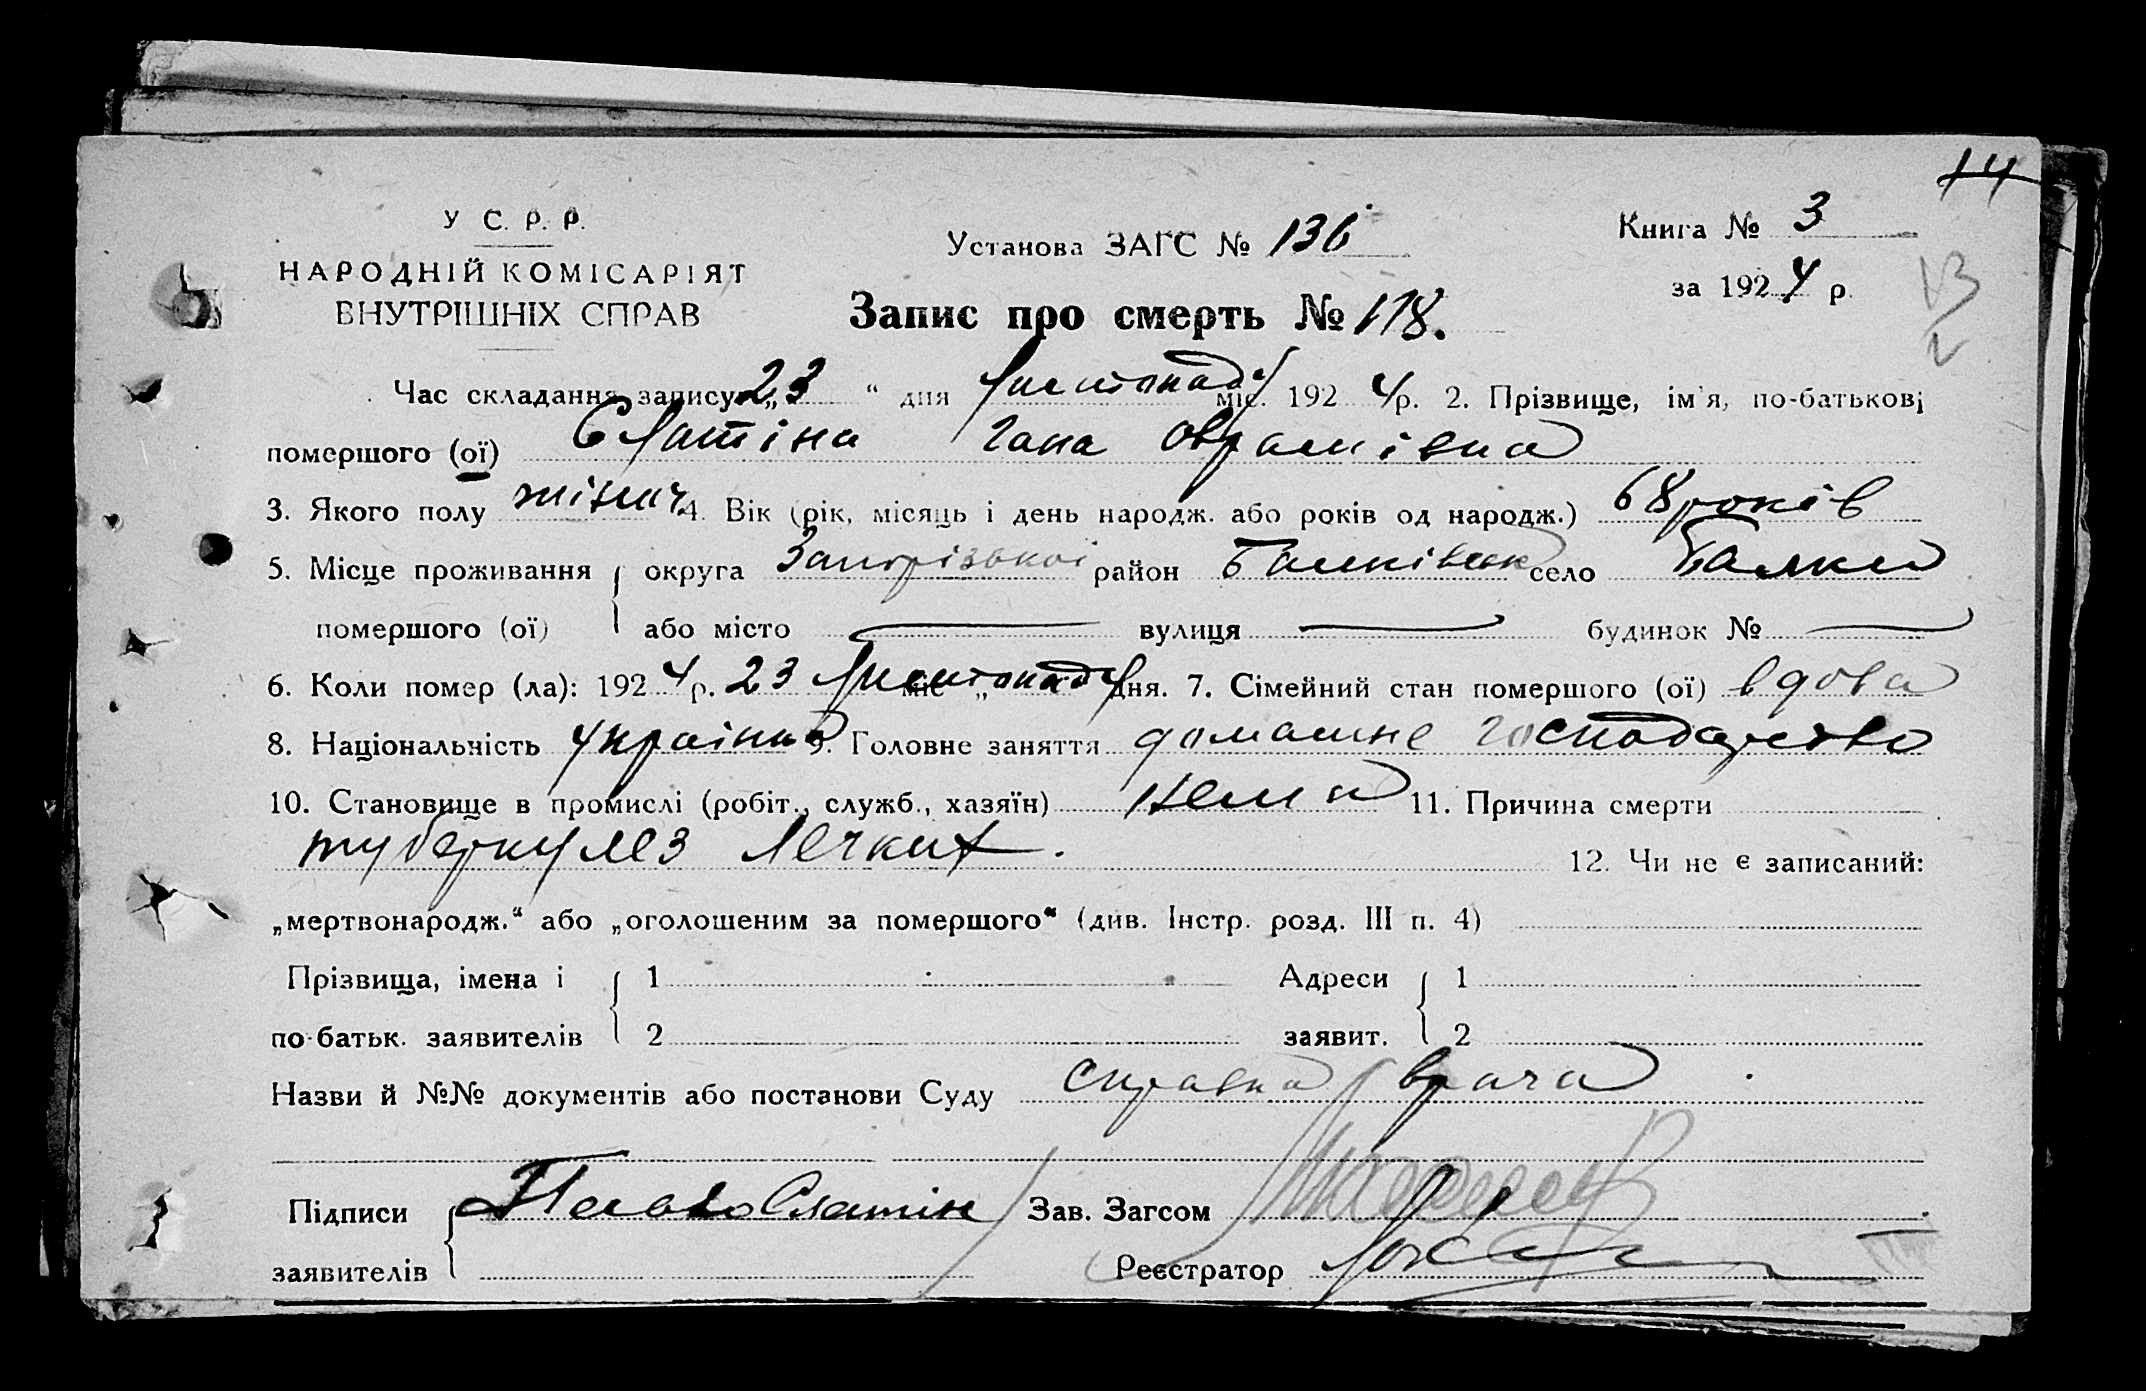 14
У С. Р. Р.
НАРОДНІЙ КОМІСАРІЯТ
ВНУТРІШНІХ СПРАВ
Установа ЗАГС № 136
Книга № 3
за 1924 р.
Запис про смерть № 118.
Час складання запису „23“ дня Листопада міс. 1924 р. 2. Прізвище, ім'я, по-батькові
помершого (ої) Слатіна Гана Оврамівна
3. Якого полу жіноч. 4. Вік (рік, місяць і день народж. або років од народж.) 68 років
5. Місце проживання округа Запорізької район Балківськ село Балки
помершого (ої) або місто — вулиця — будинок № —
6. Коли помер (ла): 1924 р. 23 Листопада міс „ дня. 7. Сімейний стан помершого (ої) вдова
8. Національність україн. 9. Головне заняття домашнє господарство
10. Становище в промислі (робіт., служб., хазяїн) нема 11. Причина смерти
туберкулез легких. 12. Чи не є записаний:
„мертвонародж.“ або „оголошеним за помершого“ (див. Інстр. розд. III п. 4)
Прізвища, імена і 1 Адреси 1
по-батьк. заявителів 2 заявит. 2
Назви й №№ документів або постанови Суду справка врача
Підписи Павло Слатін Зав. Загсом
заявителів Реєстратор